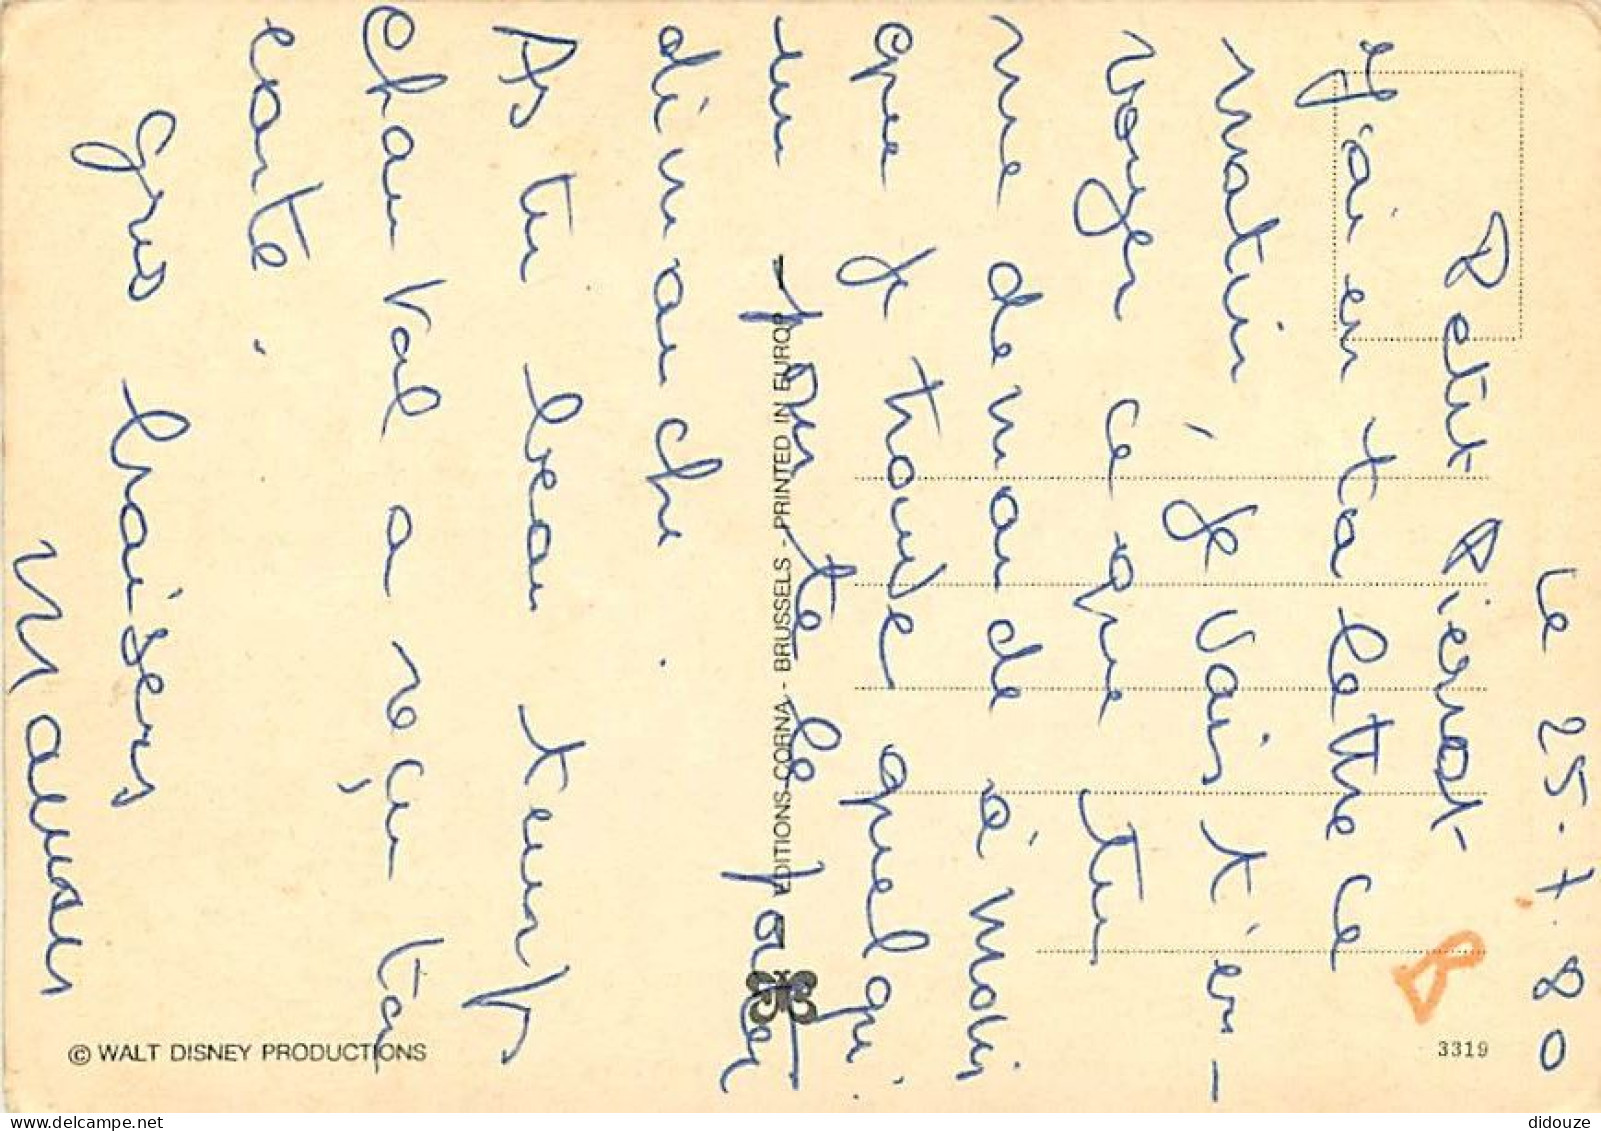 Le 25.7.80
Petit Pierrot
J'ai eu ta lettre ce
matin, je vais t'en-
voyer ce que tu
me demande à moin
que je trouve quelqu'
un pour te le porter
dimanche.
As tu beau temps
Chau Val a reçu ta
carte.
Gros baisers
Maman
EDITIONS CORNA - BRUSSELS - PRINTED IN EUROP
© WALT DISNEY PRODUCTIONS
3319
didouze